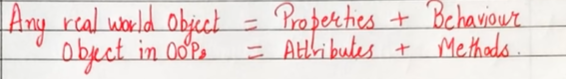 Any real world object = Properties + Behaviour
Object in OOPs = Attributes + Methods.